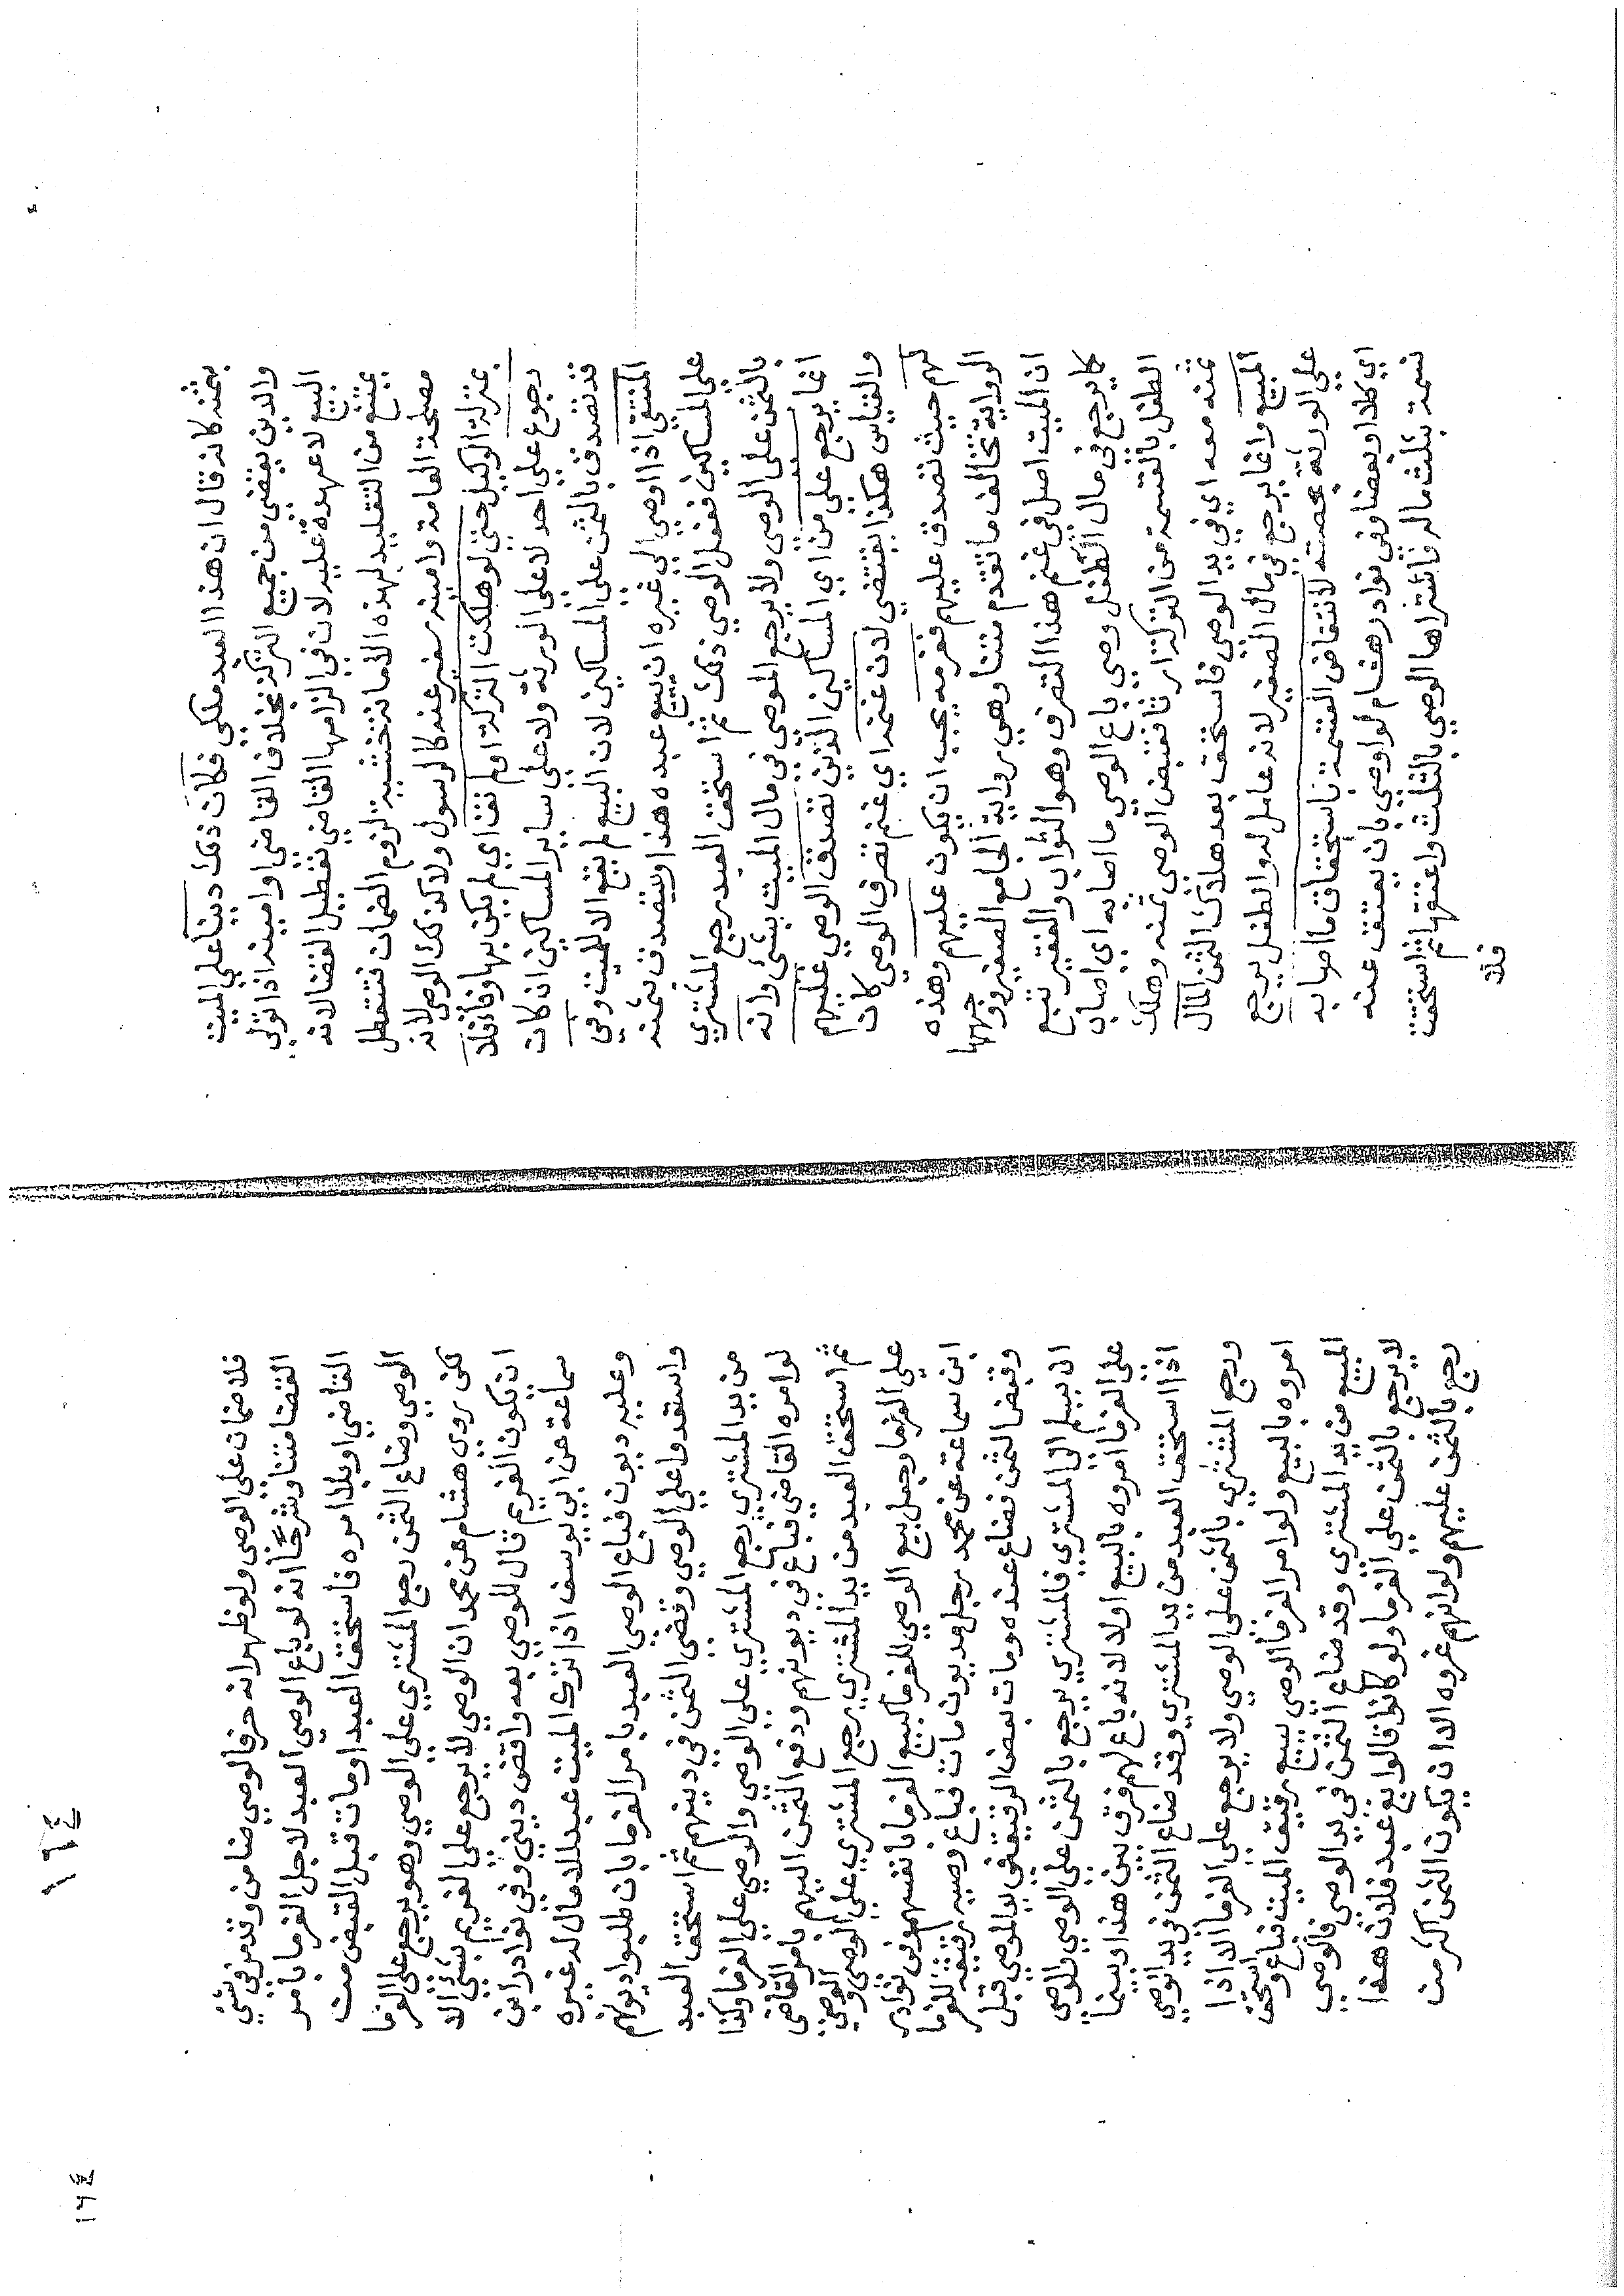 بثمنه كانه قال ان هذا العبد ملكي فكان ذلك دينا علي الميت
والدين يقضي من جميع التركة بخلاف القاضي او امينه اذا تولي
البيع لا عهدة عليه لان في الزامها القاضي تعطيل القضا لانه
يمتنع من التقليد لهذه الأمانة خشية لزوم الضمان فتتعطل
مصلحة العامة وامينه سفير عنه كالرسول ولا كذلك الوصي لانه
بمنزلة الوكيل حتي لو هلكت التركة او لم تف اي لم يكن بها وفا فلا
رجوع علي احد لا علي الورثة ولا علي ساير المساكين ان كان
قد تصدق بالثمن علي المساكين لان البيع لم يقع الا للميت وفي
المنتقي اذا اوصي الي غيره ان يبيع عبده هذا ويتصدق بثمنه
علي المساكين ففعل الوصي ذلك ثم استحق العبد رجع المشتري
بالثمن علي الوصي ولا يرجع الوصي في مال الميت بشئ وانه
انما يرجع علي من اي المساكين الذين تصدق الوصي عليهم
والقياس هكذا يقتضي لان غنم اي غنم تصرف الوصي كان
لهم حيث تصدق عليهم فغرمه يجب ان يكون عليهم وهذه
الرواية تخالف ما تقدم متنا وهي رواية الجامع الصغير ووجهها
ان الميت اصل في غنم هذا التصرف وهو الثواب والفقير تبع
كما يرجع في مال الطفل وصي باع الوصي ما اصابه اي اصاب
الطفل بالقسمة من التركة ارثا فقبض الوصي ثمنه وهلك
ثمنه معه اي في يد الوصي فاستحق بعد هلاك الثمن المال
المبيع وانما يرجع في مال الصغير لانه عامل له والطفل يرجع
علي الورثة بحصته لانتقاض القسمة باستحقاق ما اصابه
اي كلا او بعضا وفي نوادر هشام لو اوصي بان يعتق عنه
نسمة بثلث ماله فاشتراها الوصي بالثلث واعتقها ثم استحقت
فلا
فلا ضمان علي الوصي ولو ظهر انه حر فالوصي ضامن وقد مر في شتي
القضا متنا وشرحا انه لو باع الوصي العبد لاجل الغرما بامر
القاضي او بلا امره فاستحق العبد او مات قبل القبض من
الوصي وضاع الثمن رجع المشتري علي الوصي وهو يرجع علي الغرما
لكن روي هشام عن محمد ان الوصي لا يرجع علي الغريم بشئ الا
ان يكون الغريم قال للوصي بعه واقض ديني وفي نوادر ابن
سماعة عن ابي يوسف اذا ترك الميت عبدا لا مال له غيره
وعليه ديون فباع الوصي العبد بامر الغرما بان طلبوا ديونهم
واستعدوا علي الوصي وقضي الثمن في دينهم ثم استحق العبد
من يد المشتري رجع المشتري علي الوصي والوصي علي الغرما وكذا
لو امره القاضي فباع في ديونهم ودفع الثمن اليهم بامر القاضي
ثم استحق العبد من يد المشتري يرجع المشتري علي الوصي والوصي
علي الغرما وجعل بيع الوصي للغرما كبيع الغرما بانفسهم وفي نوادر
ابن سماعة عن محمد رجل مديون مات فباع وصيه رقيقه للغرما
وقبض الثمن فضاع عنده ومات بعض الرقيق في يد الوصي قبل
ان يسلم الي المشتري فالمشتري يرجع بالثمن علي الوصي والوصي
علي الغرما امروه بالبيع او لا لانه باع لهم فرق بين هذا وبينما
اذا استحق العبد من يد المشتري وقد ضاع الثمن في يد الوصي
ورجع المشتري بالثمن علي الوصي ولا يرجع علي الغرما الا اذا
امروه بالبيع ولو امر الغرما الوصي ببيع رقيق الميت فباع واستحق
المبيع من يد المشتري وقد ضاع الثمن في يد الوصي فالوصي
لا يرجع بالثمن علي الغرما ولو كانوا قالوا بع عبد فلان هذا
رجع بالثمن عليهم ولو انهم غروه الا ان يكون الثمن اكثر من
١٦٤
١٦٤